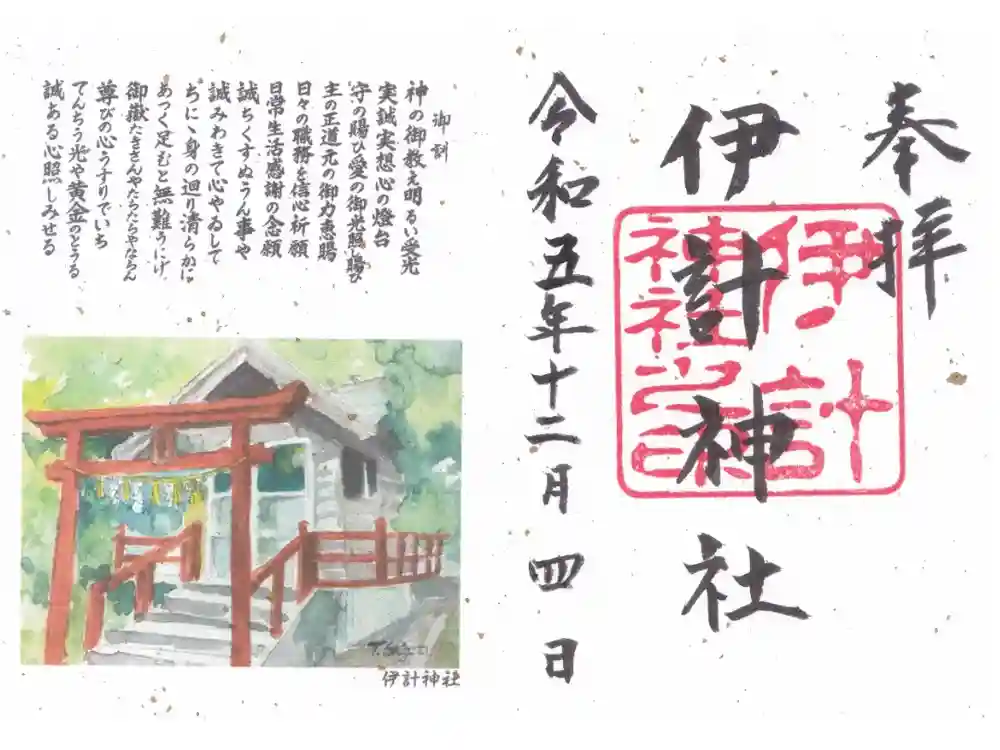 奉拝
伊計神社
伊計
神社之印
令和五年十二月四日
御訓
神の御教え明るい愛光
実誠実想心の燈台
守の賜ひ愛の御光照し賜ひ
主の正道元の御力恵賜
日々の職務を信心祈願
日常生活感謝の念願
誠ちくすぬうん事や
誠みわきて心やゐして
ぢに、身の廻り清らかに
あっく足むと無難うにげ
御嶽たきさんやたらたらやならん
尊びの心うすりでいち
てんちう光や黄金のとうる
誠ある心照しみせる
伊計神社